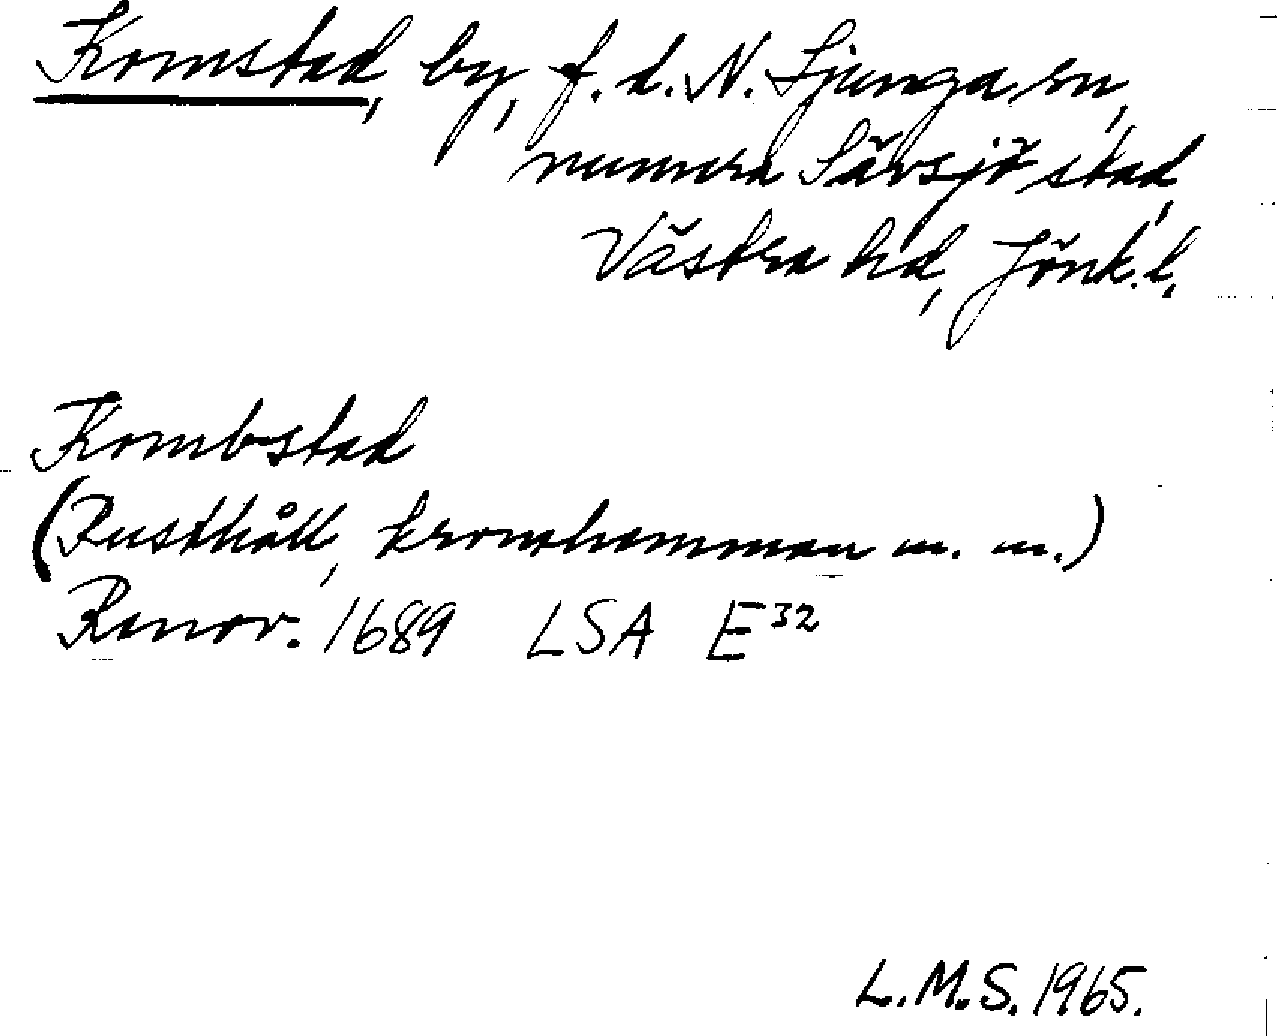 Komstad, by, f. d. N. Ljunga sn,
numera Sävsjö stad,
Västra hd, Jönk. l.
Kombstad
(Rusthåll, kronohemman m. m.)
Renov. 1689 LSA E³²
L.M.S. 1965.